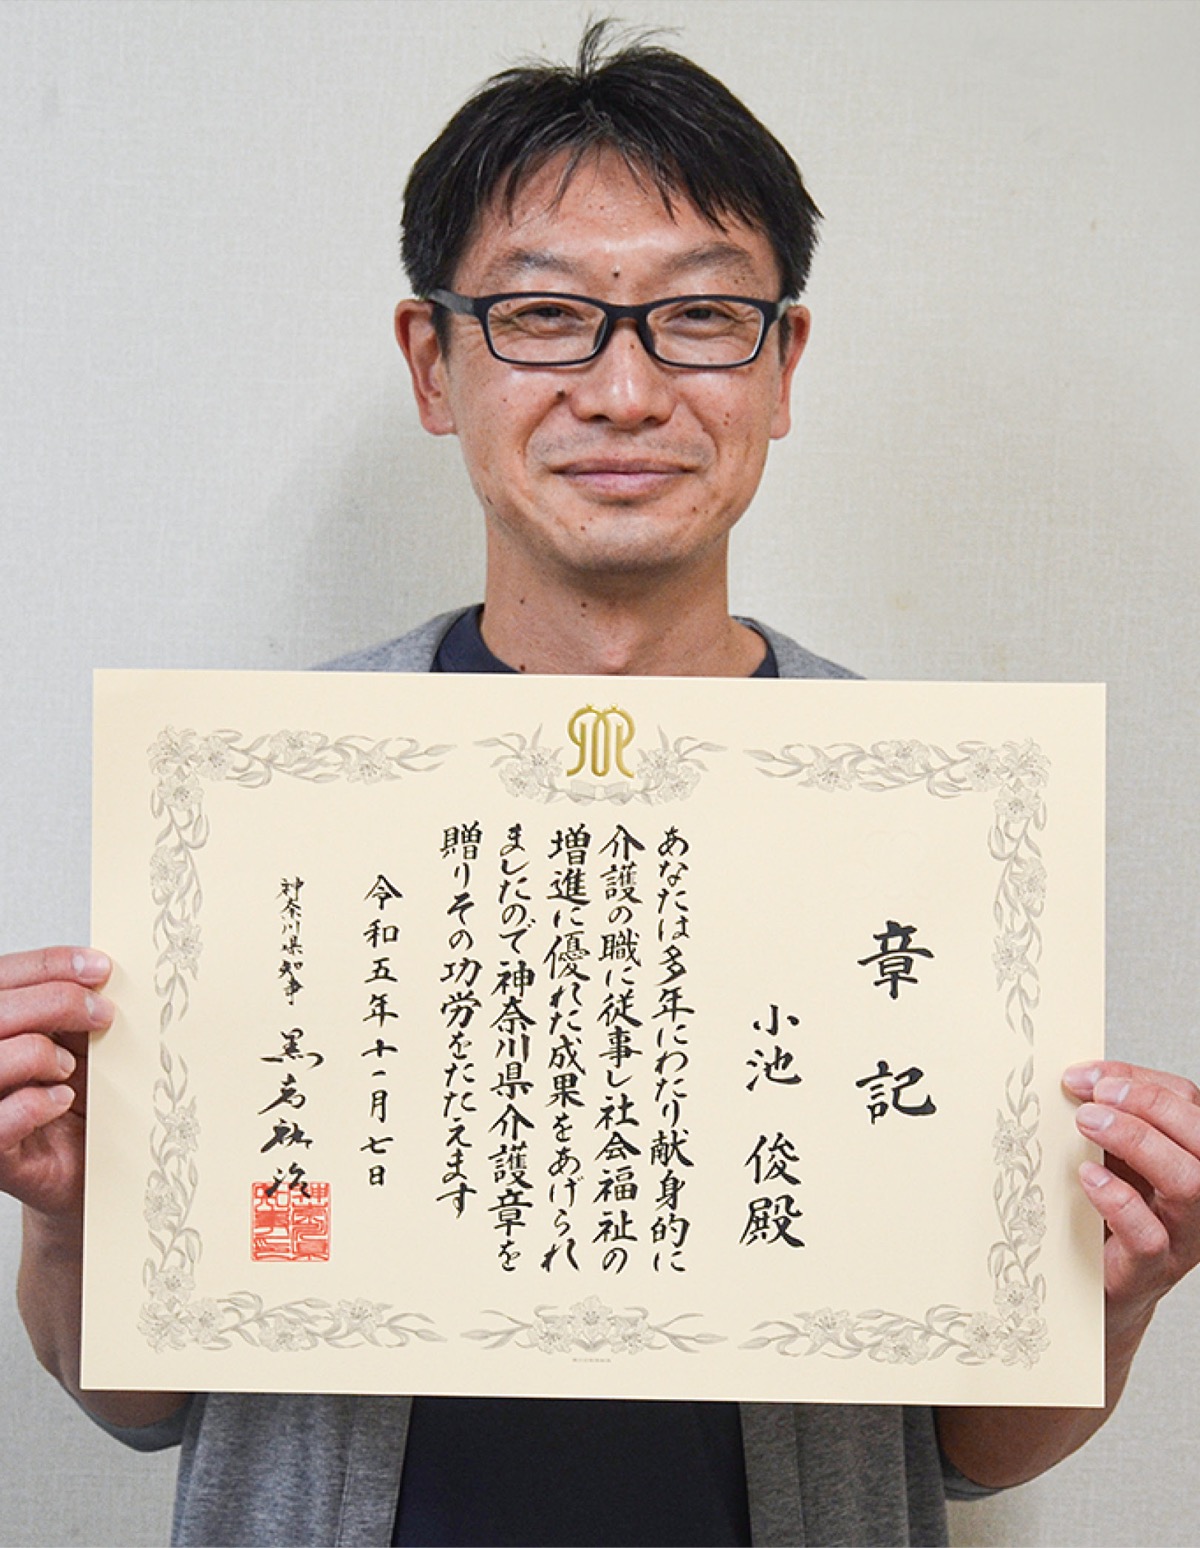 章記
小池 俊殿
あなたは多年にわたり献身的に
介護の職に従事し社会福祉の
増進に優れた成果をあげられ
ましたので神奈川県介護章を
贈りその功労をたたえます
令和五年十一月七日
神奈川県知事 黒岩祐治